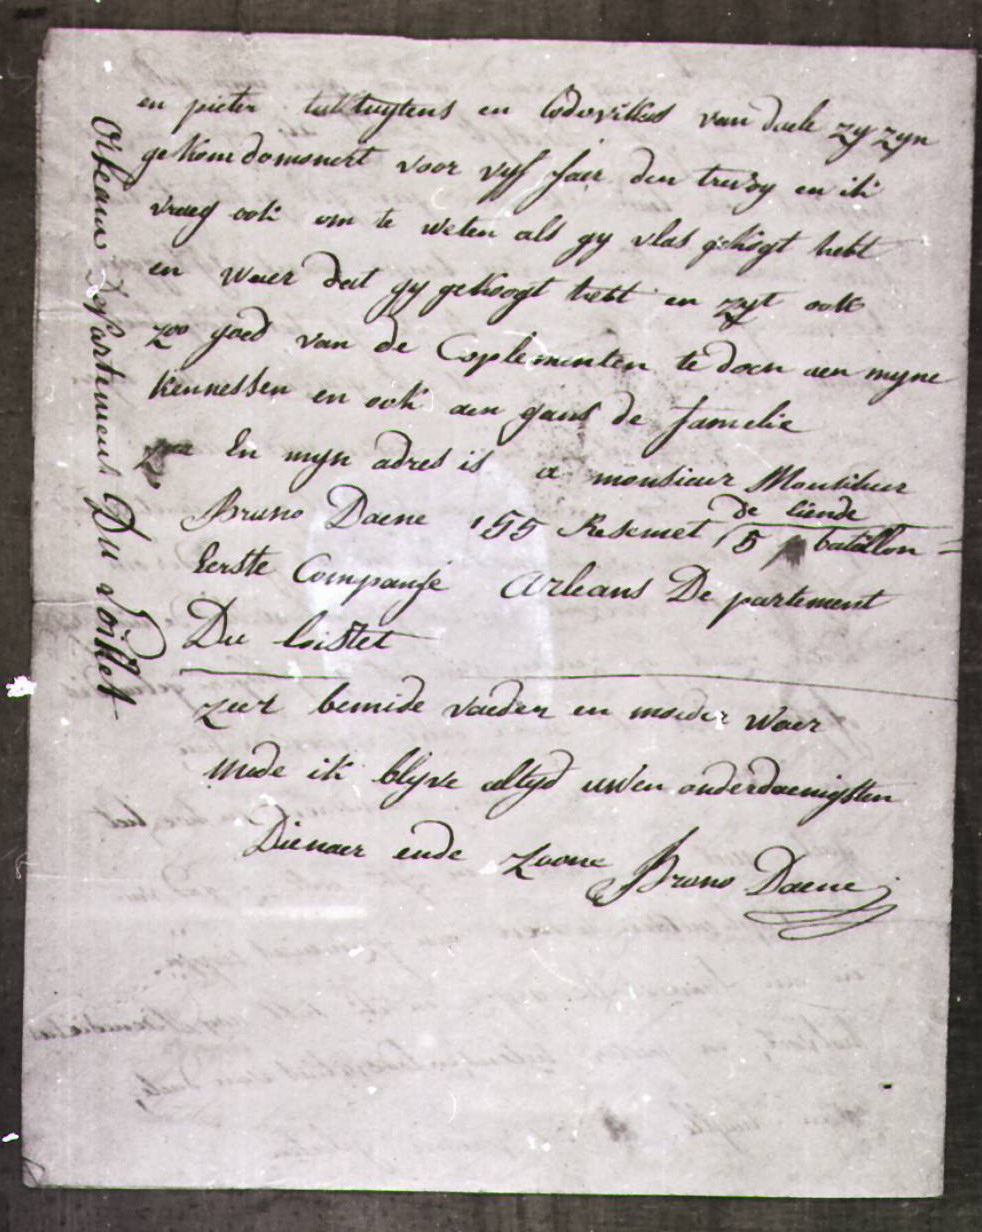 en pieter tuttuytens en lodovikus van daele zy zyn
gekomdomonert voor vyf jaer den trivoy en ik
vraeg ook om te weten als gy vlas gekogt hebt
en waer dat gy gekoogt hebt en zyt ook
zoo goed van de Coplementen te doen aen myne
kennessen en ook aen gans de famelie
En myn adres is a monsieur Monsiheur
Bruno Daene 155 Resemet de liende
5 batallon =
Eerste Companje Orleans De partement
Du loistet
zeer bemide vaeder en moeder Waer
mede ik blyve altyd uwen onderdaenigsten
Dienaer ende zoone Bruno Daene
Orleans Departiment Du Loiktet